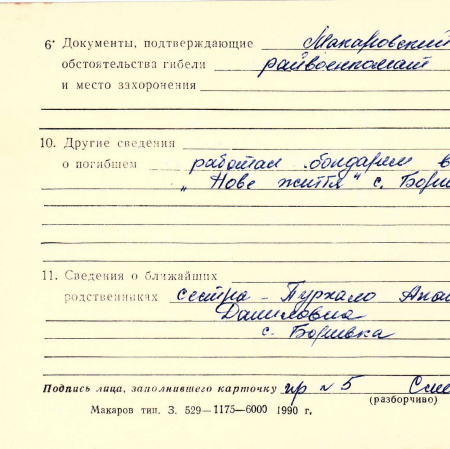 6· Документы, подтверждающие Макаровский
обстоятельства гибели райвоенкомат
и место захоронения
10. Другие сведения
о погибшем работал в
„Нове життя“ с.
11. Сведения о ближайших
родственниках сестра – Пурхало
Даниловна
с. Боривка
Подпись лица, заполнившего карточку пр № 5
(разборчиво)
Макаров тип. З. 529—1175—6000 1990 г.